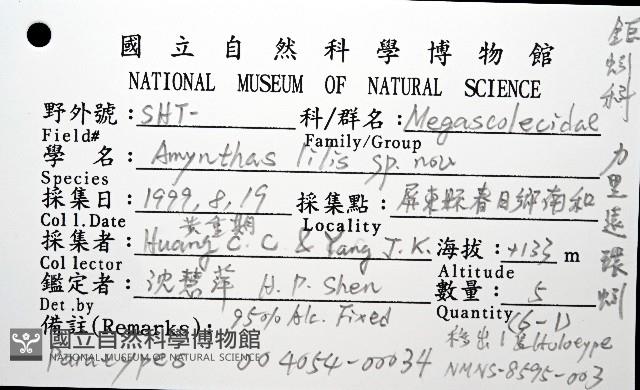 國立自然科學博物館
NATIONAL MUSEUM OF NATURAL SCIENCE
野外號：SHT-
Field#
科/群名：Megascolecidae
Family/Group
學 名：Amynthas lilis sp. nov
Species
採集日：1999, 8, 19
Coll.Date
採集點：屏東縣春日鄉南和
Locality
黃重期
採集者：Huang C. C. & Yang J. K.
Collector
海拔：+133 m
Altitude
鑑定者：沈慧萍 H. P. Shen
Det.by
數量：5
Quantity (6-1)
備註(Remarks)：95% Alc. Fixed
移出1隻Holotype
Paratypes 004054-00034
NMNS-8595-003
鉅蚓科 力里遠環蚓
國立自然科學博物館
NATIONAL MUSEUM OF NATURAL SCIENCE